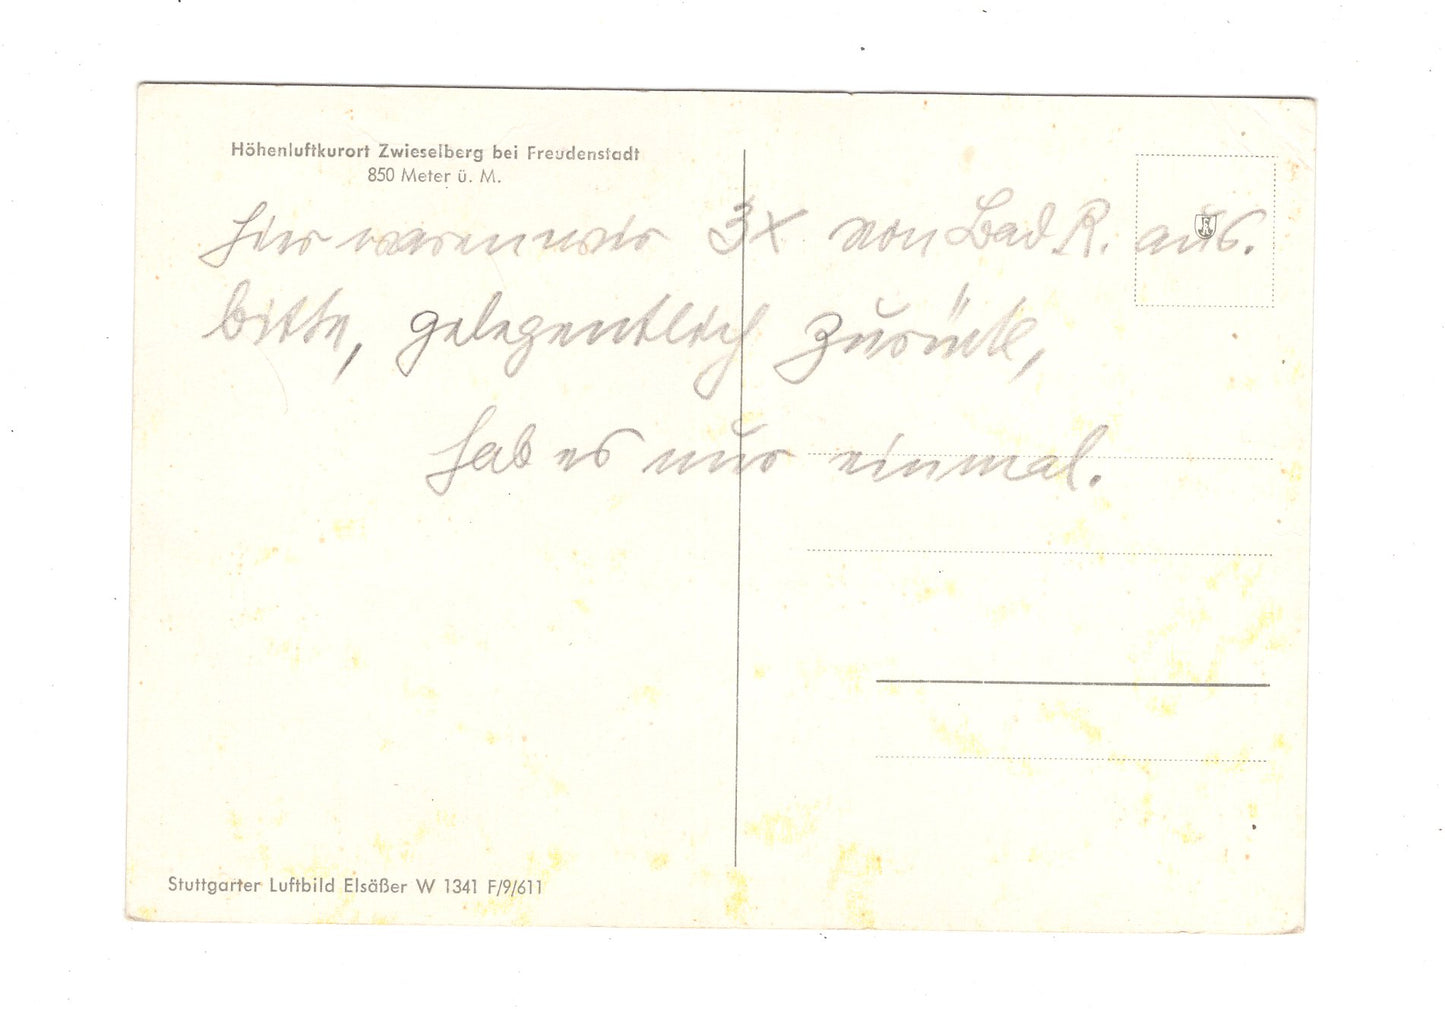 Höhenluftkurort Zwieselberg bei Freudenstadt
850 Meter ü. M.
hier waren wir 3x von Bad R. aus.
bitte, gelegentlich zurück,
hab es nur einmal.
Stuttgarter Luftbild Elsäßer W 1341 F/9/611